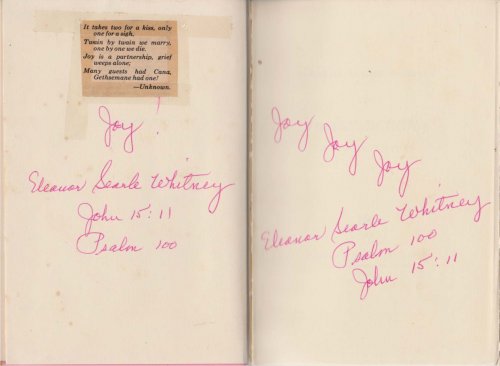 It takes two for a kiss, only
one for a sigh.
Twain by twain we marry,
one by one we die.
Joy is a partnership, grief
weeps alone;
Many guests had Cana,
Gethsemane had one!
—Unknown.
Joy!
Eleanor Searle Whitney
John 15:11
Psalm 100
Joy Joy Joy
Eleanor Searle Whitney
Psalm 100
John 15:11